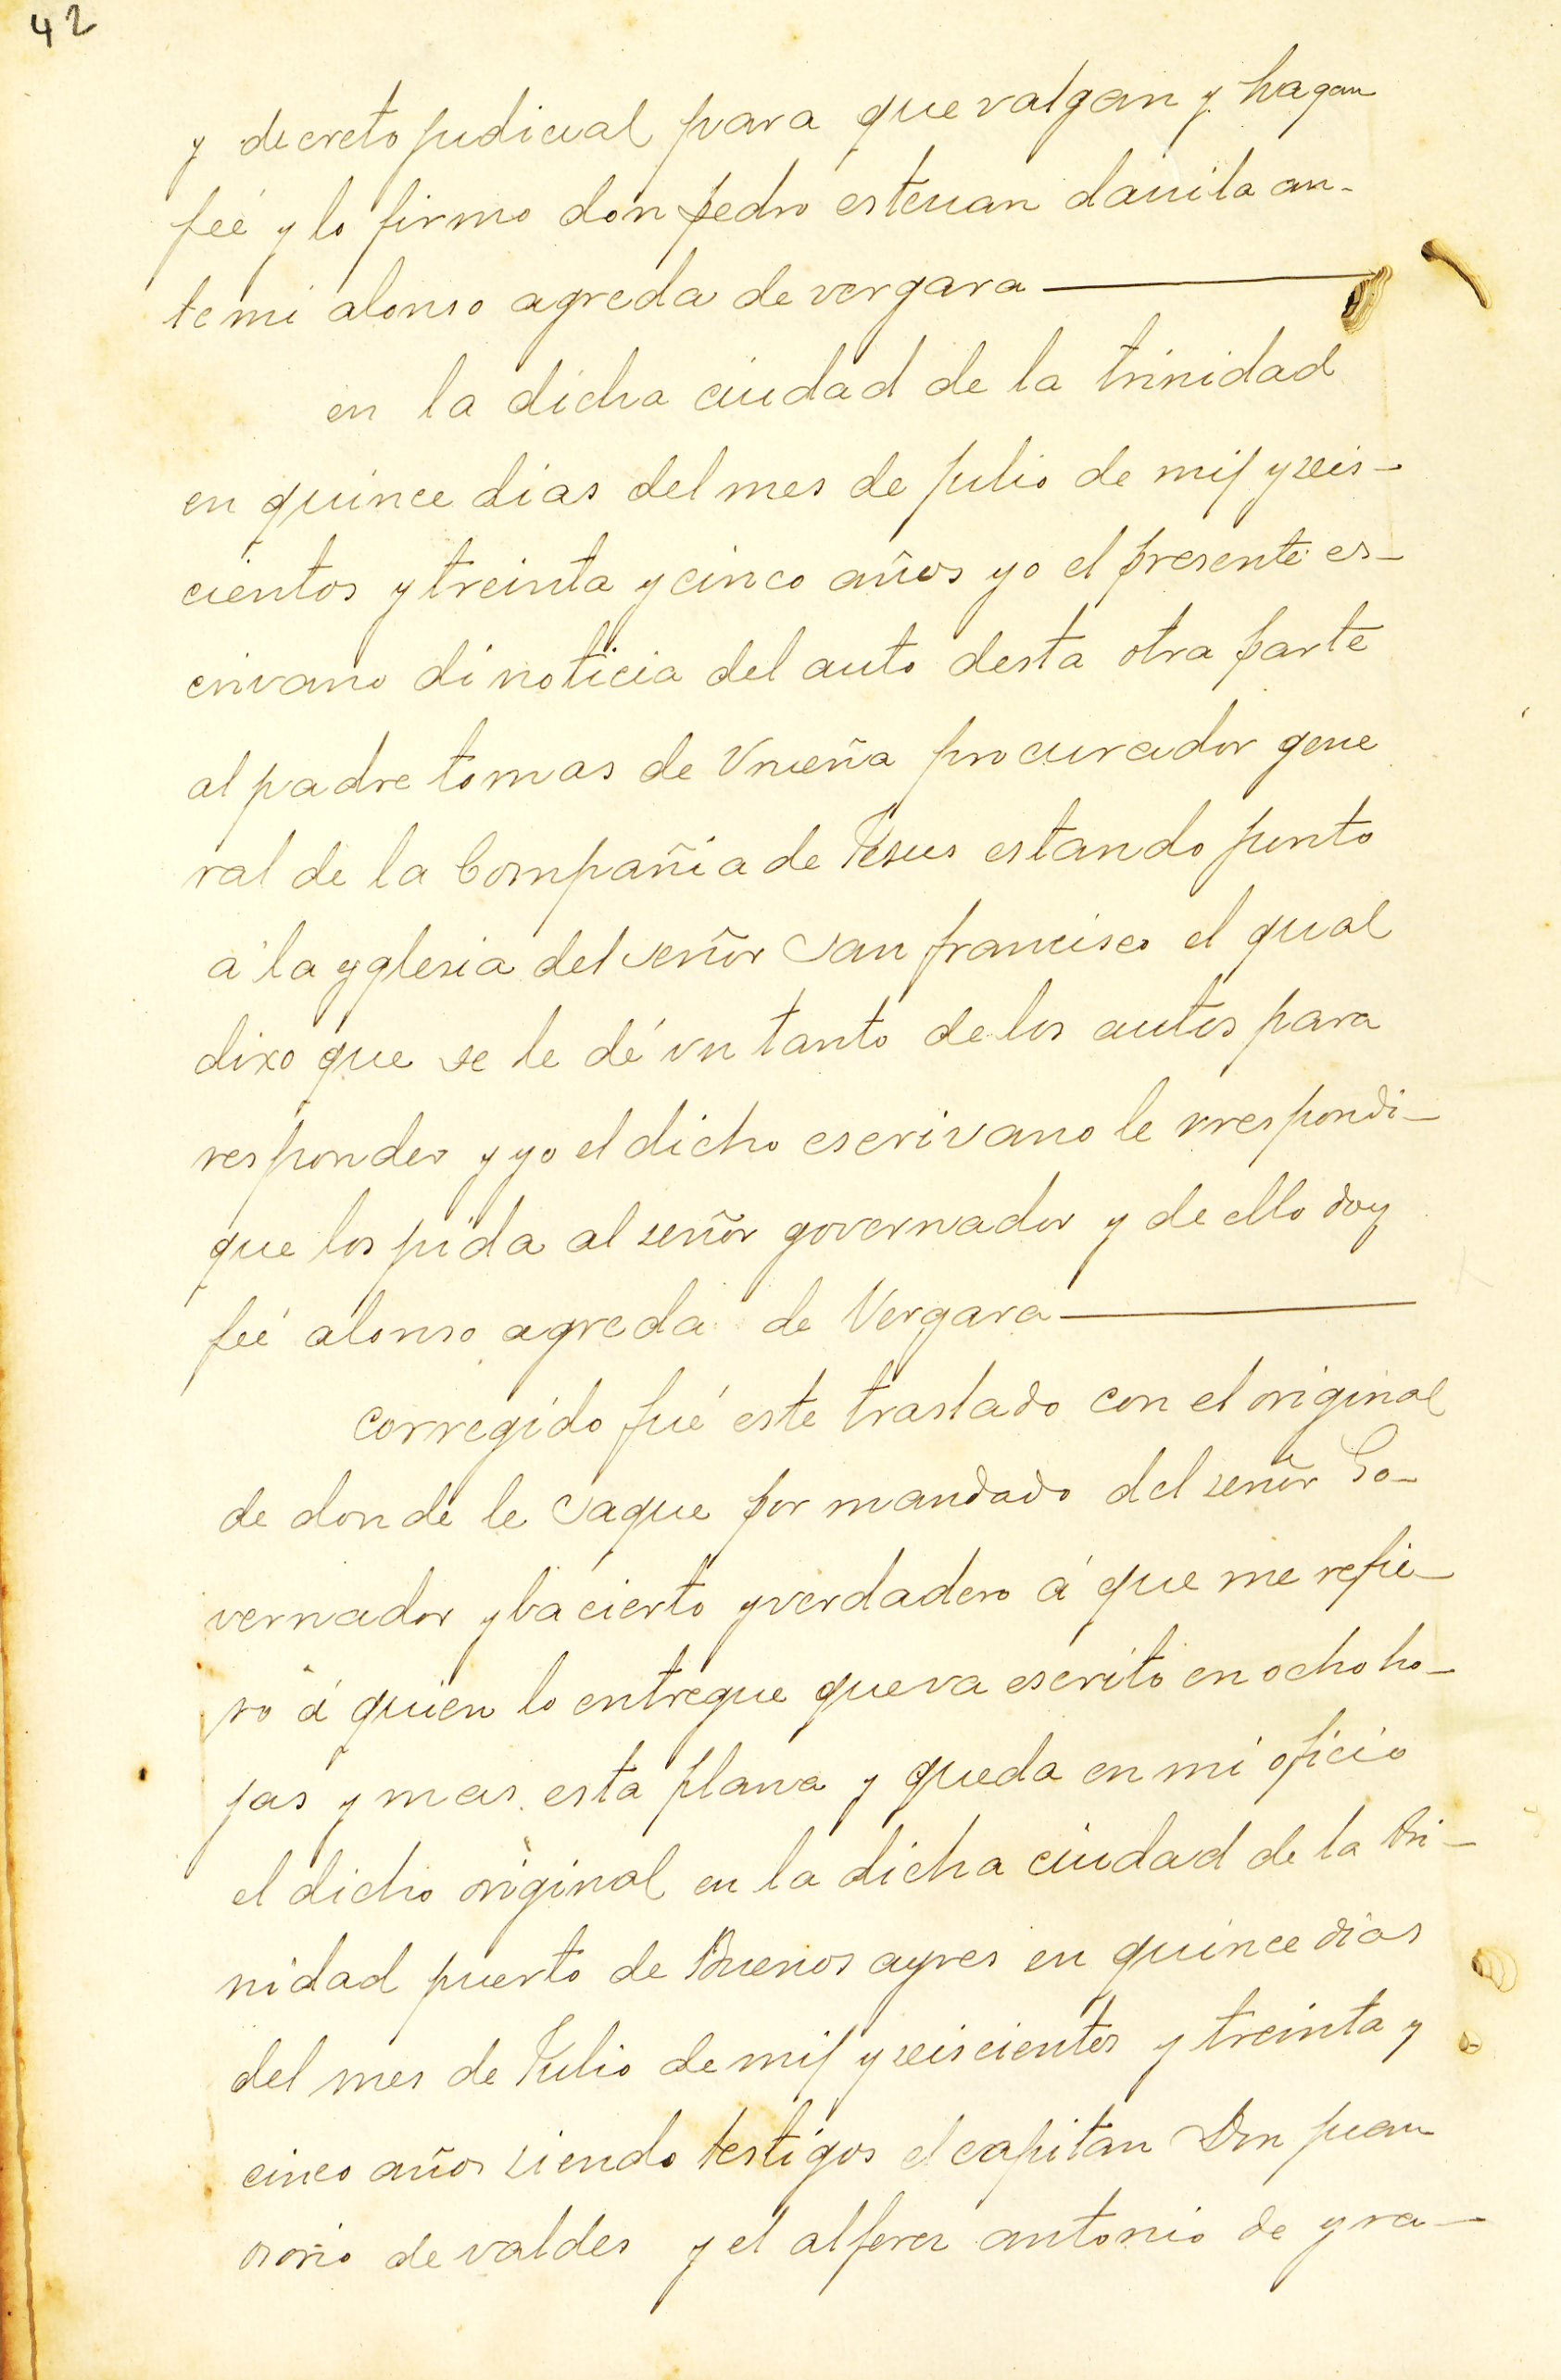 42
y decreto judicial para que valgan y hagan
feé y lo firmo don pedro esteuan dauila an-
te mi alonso agreda de vergara —
en la dicha ciudad de la trinidad
en quince dias del mes de julio de mil y seis-
cientos y treinta y cinco años yo el presente es-
crivano di noticia del auto desta otra parte
al padre tomas de Vrueña procurador gene
ral de la Compañia de Jesus estando junto
a la yglesia del señor san francisco el qual
dixo que se le dé vn tanto de los autos para
responder y yo el dicho escrivano le rrespondi-
que los pida al señor governador y de ello doy
feé alonso agreda de Vergara —
corregido fué este traslado con el original
de donde le saque por mandado del señor Go-
vernador y ba cierto y verdadero á que me refie-
ro á quien lo entregue que va escrito en ocho ho-
jas y mas esta plana y queda en mi oficio
el dicho original en la dicha ciudad de la tri-
nidad puerto de Buenos ayres en quince dias
del mes de Julio de mil y seiscientos y treinta y
cinco años siendo testigos el capitan Don juan
osorio de valdes y el alferez antonio de gra-